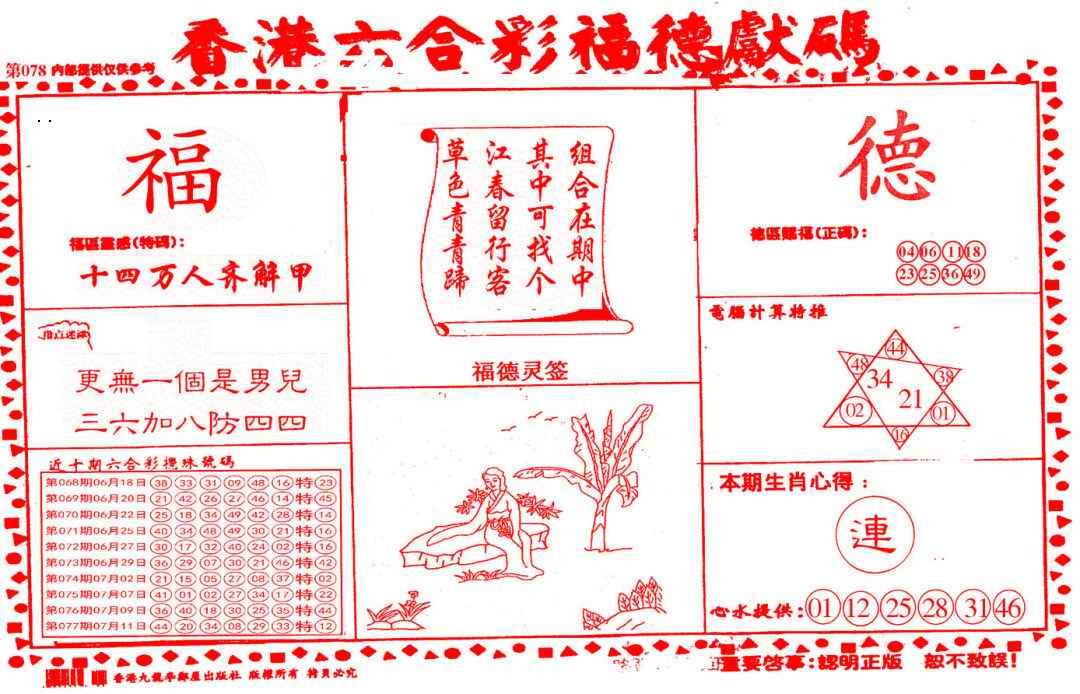 香港六合彩福德獻碼
第078 内部提供仅供参考
福
福區靈感(特碼):
十四万人齐解甲
指点迷津
更無一個是男兒
三六加八防四四
近十期六合彩攪珠號碼
第068期06月18日 38 33 31 09 48 16 特 23
第069期06月20日 21 42 26 27 46 14 特 45
第070期06月22日 25 18 34 49 42 28 特 14
第071期06月25日 40 34 48 49 30 21 特 16
第072期06月27日 30 17 32 40 24 02 特 16
第073期06月29日 36 29 07 30 21 46 特 42
第074期07月02日 21 15 05 27 08 37 特 02
第075期07月07日 41 01 02 27 34 17 特 22
第076期07月09日 36 40 18 30 25 35 特 44
第077期07月11日 44 20 34 08 29 33 特 12
组合在期中
其中可找个
江春留行客
草色青青蹄
福德灵签
德
德區賜福(正碼):
04 06 11 18
23 25 36 49
電腦計算特推
44
48 38
34 21
02 01
16
本期生肖心得:
連
心水提供: 01 12 25 28 31 46
香港九龍李鄭屋出版社 版權所有 特員必究
重要啓事:認明正版 恕不致誤!